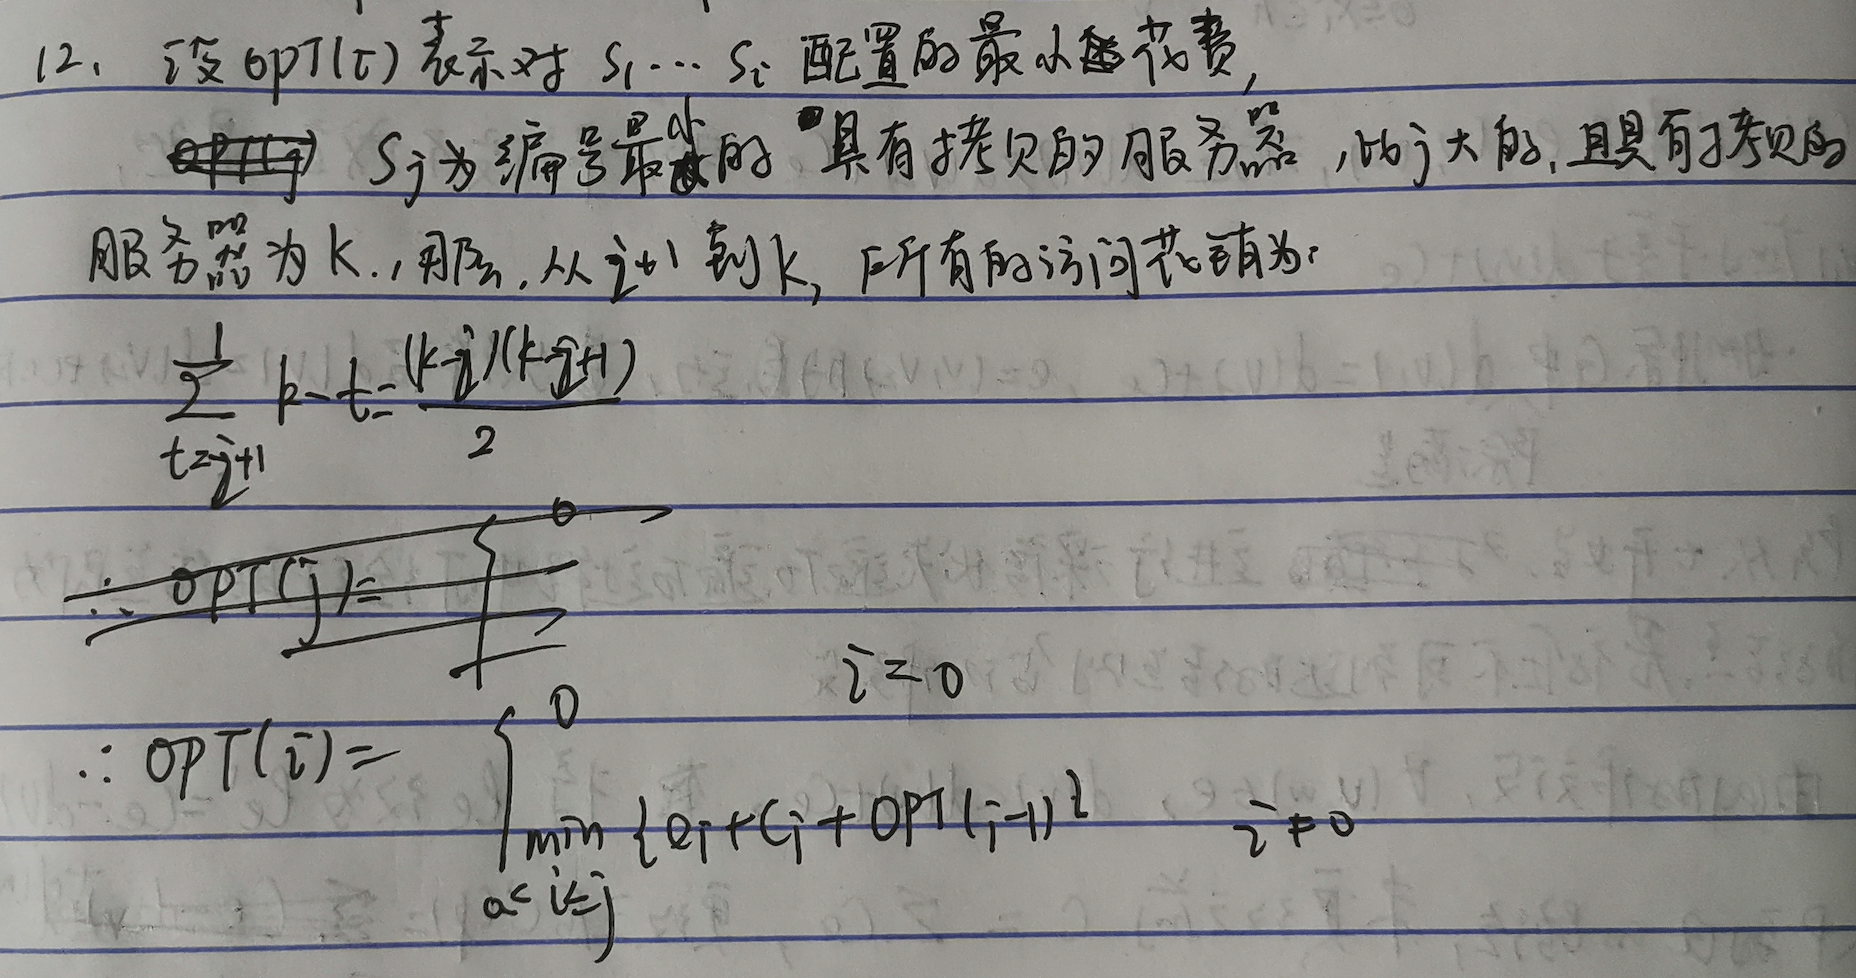 12. 设OPT(i)表示对 S₁⋯Sᵢ 配置的最小花费,
Sⱼ为编号最小的 具有拷贝的服务器,比j大的,且具有拷贝的
服务器为k., 那么,从j+1到k,所有的访问花销为:
∑_{t=j+1} k-t=(k-j)(k-j+1)/2
∴ OPT(j)= { 0
0 i=0
∴ OPT(i)= {
min {eⱼ+Cⱼ+OPT(j-1)} i≠0
0<i≤j